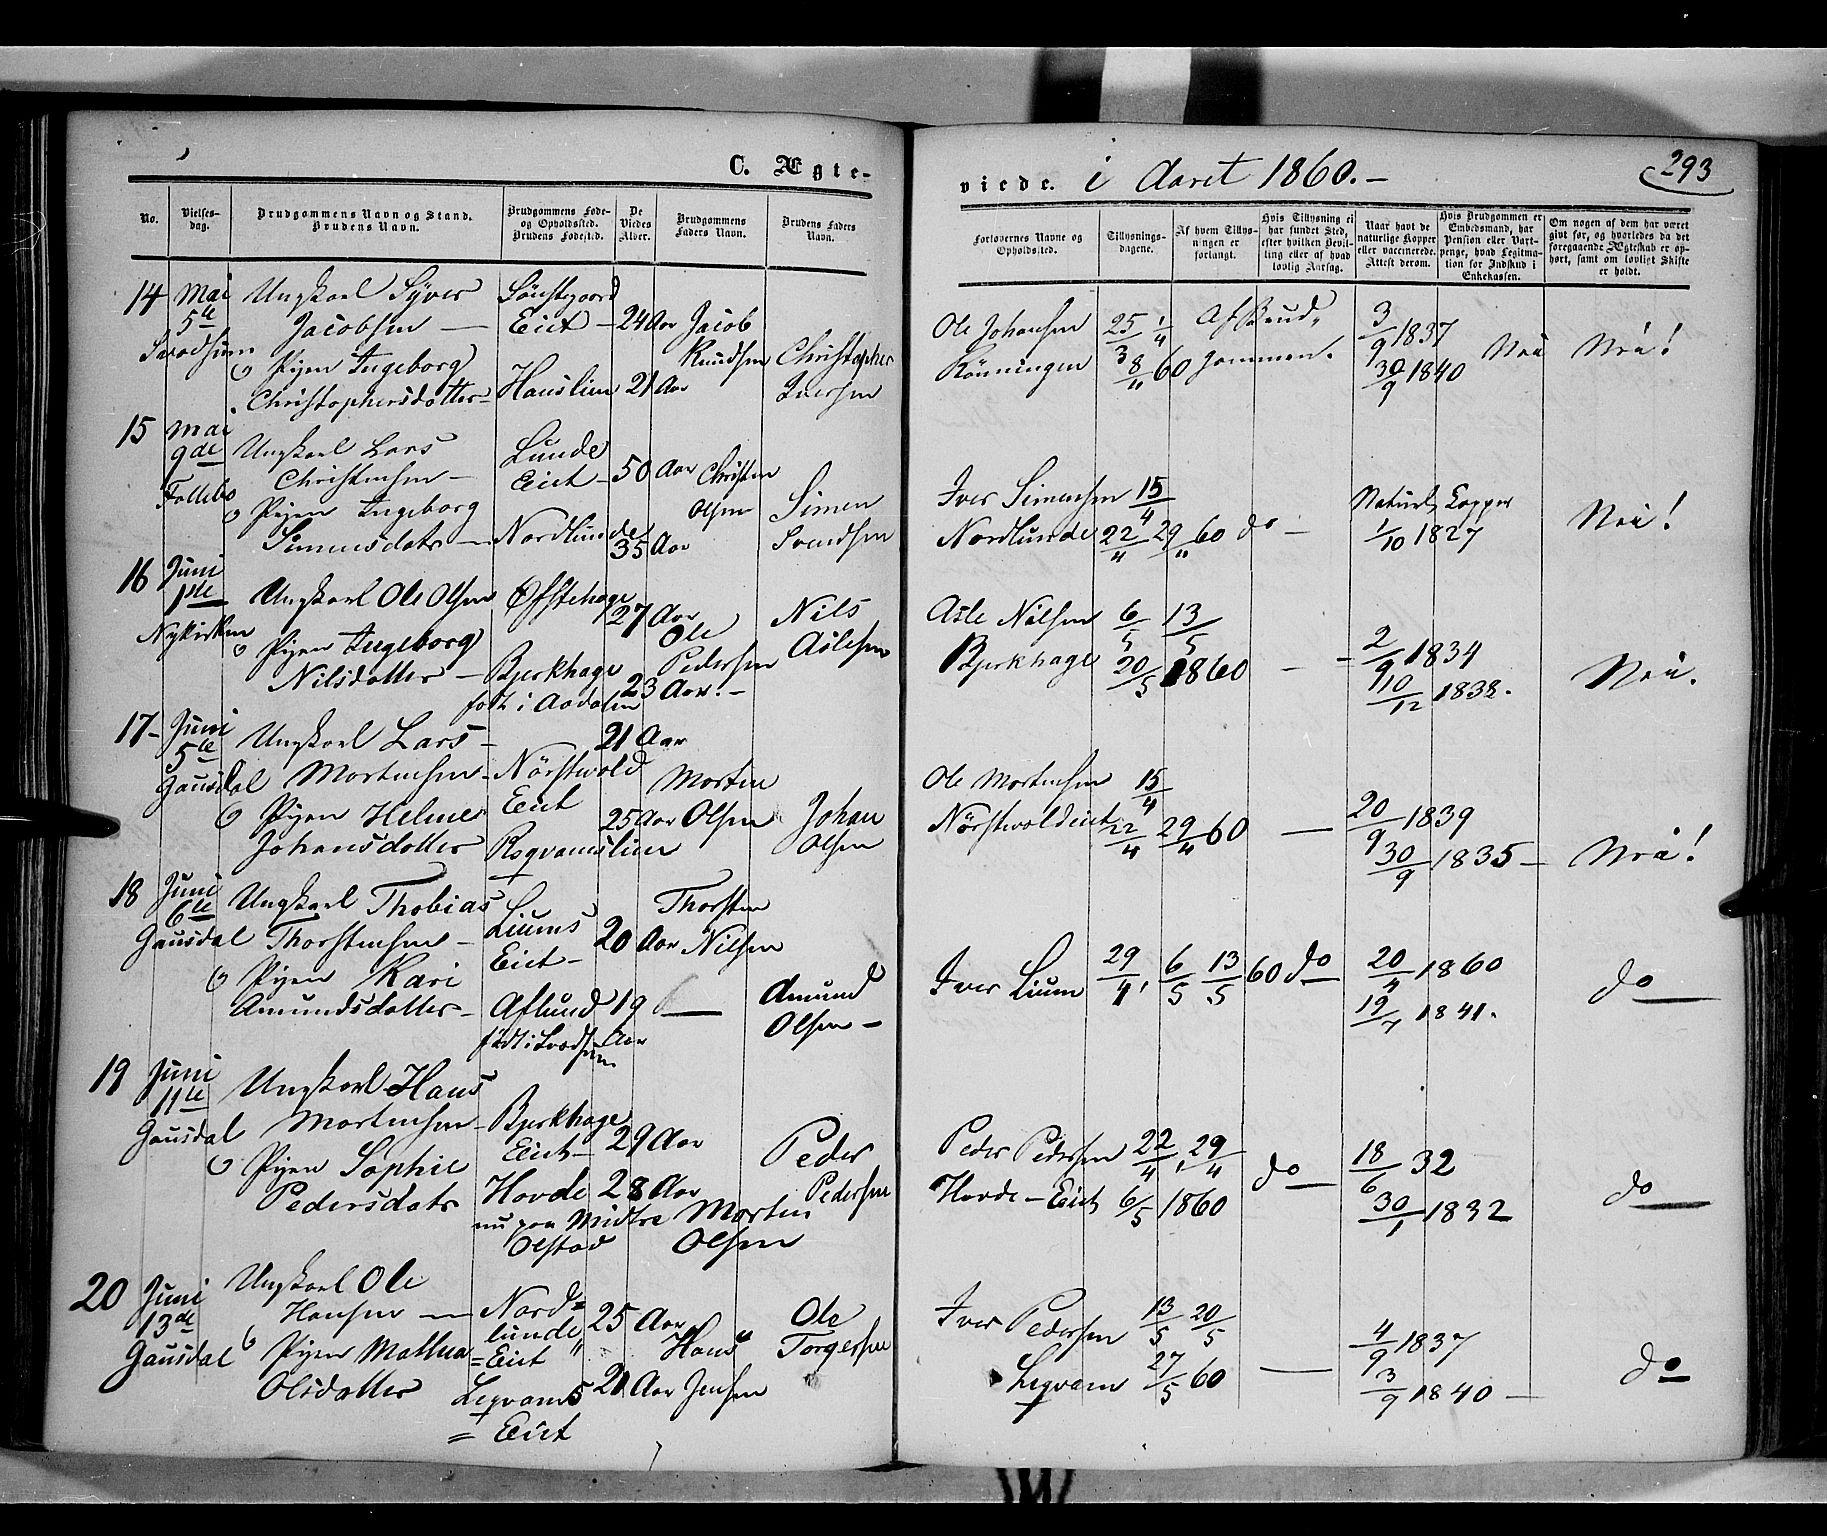 C. Ægte-
viede. i Aaret 1860.-
293
No.
Vielses-
dag.
Brudgommens Navn og Stand.
Brudens Navn.
Brudgommens Føde-
og Opholdssted.
Brudens Fødested.
De
Viedes
Alder.
Brudgommens
Faders Navn.
Brudens Faders
Navn.
Forlovernes Navne og
Opholdssted.
Tillysnings-
dagene.
Af hvem Tillys-
ningen er
forlangt.
Hvis Tillysning ei
har fundet Sted,
efter hvilken Bevil-
ling eller af hvad
lovlig Aarsag.
Naar havt de
naturlige Kopper
eller vaccinerede.
Attest derom.
Hvis Brudgommen er
Embedsmand, har
Pension eller Vart-
penge, hvad Legitima-
tion for Indskud i
Enkekassen.
Om nogen af dem har været
givt før, og hvorledes da det
foregaaende Ægteskab er op-
hørt, samt om lovligt Skifte
er holdt.
14 Mai 5te Svadsum
Ungkarl Syver
Jacobsen
Eiet - 24 Aar Jacob
Knudsen Christopher
Iversen
& Pigen Ingeborg
Christophersdatter Hauslien 21 Aar
Ole Johansen
Rönningen
25/" 1/4
3/" 8/" 60
Af Brud-
gommen.
3/9 1837
30/9 1840
Nei Nei!
15 Mai 9de Follebo
Ungkarl Lars
Christensen -
Lunde
Eiet - 50 Aar Christen
Olsen Simen
Svendsen
& Pigen Ingeborg
Simensdatr - Nordlunde 35 Aar
Iver Simensen 15/4
Nordlunde 22/4 29/" 60 do -
Naturl. Kopper
1/10 1827
Nei!
16 Juni 1ste Nykirken
Ungkarl Ole Olsen Øfstehage 27 Aar
Ole
Pedersen
Nils
Aslesen
& Pigen Ingeborg
Nilsdatter - Bjerkhage
født i Aadalen 23 Aar. -
Asle Nilsen 6/5 13/5
Bjerkhage 20/5 1860 -
2/9 1834
10/12 1838.
Nei.
17- Juni 5te Gausdal
Ungkarl Lars - 21 Aar
Mortensen - Nörstvold
Eiet
Morten
Olsen Johan
Olsen
& Pigen Helene 25 Aar
Johansdatter Rogvamslien
Ole Mortensen 15/4
Nörstvoldeiet 22/4 29/4 60 -
20/9 1839
30/9 1835 -
Nei!
18 Juni 6te Gausdal
Ungkarl Thobias
Thorstensen -
Liums
Eiet - 20 Aar
Thorsten
Nilsen
& Pigen Kari
Amundsdatter - Aflund 19
Aar
født i Svadsum
Amund
Olsen -
Iver Lium 29/4, 6/5 13/5 60 do
20/4 1860
19/7 1841.
do
19 Juni 11te Gausdal
Ungkarl Hans
Mortensen - Bjerkhage
Eiet - 29 Aar
Peder
Pedersen
& Pigen Sophie
Pedersdatr Hovde 28 Aar
nu paa Midtre
Olstad
Morten
Olsen
Peder Pedersen 22/4, 29/4
Hovde - Eiet 6/5 1860
do
18/6 32
30/1 1832
do
20 Juni 13de Gausdal
Ungkarl Ole
Hansen - Nord=
lunde
=Eiet
25 Aar
Hans
Jensen
Ole
Torgersen
& Pigen Mathea
Olsdatter Legvams
= Eiet
21 Aar
Iver Pedersen 13/5 20/5
Legvam 27/5 60
4/9 1837
3/9 1840 -
do